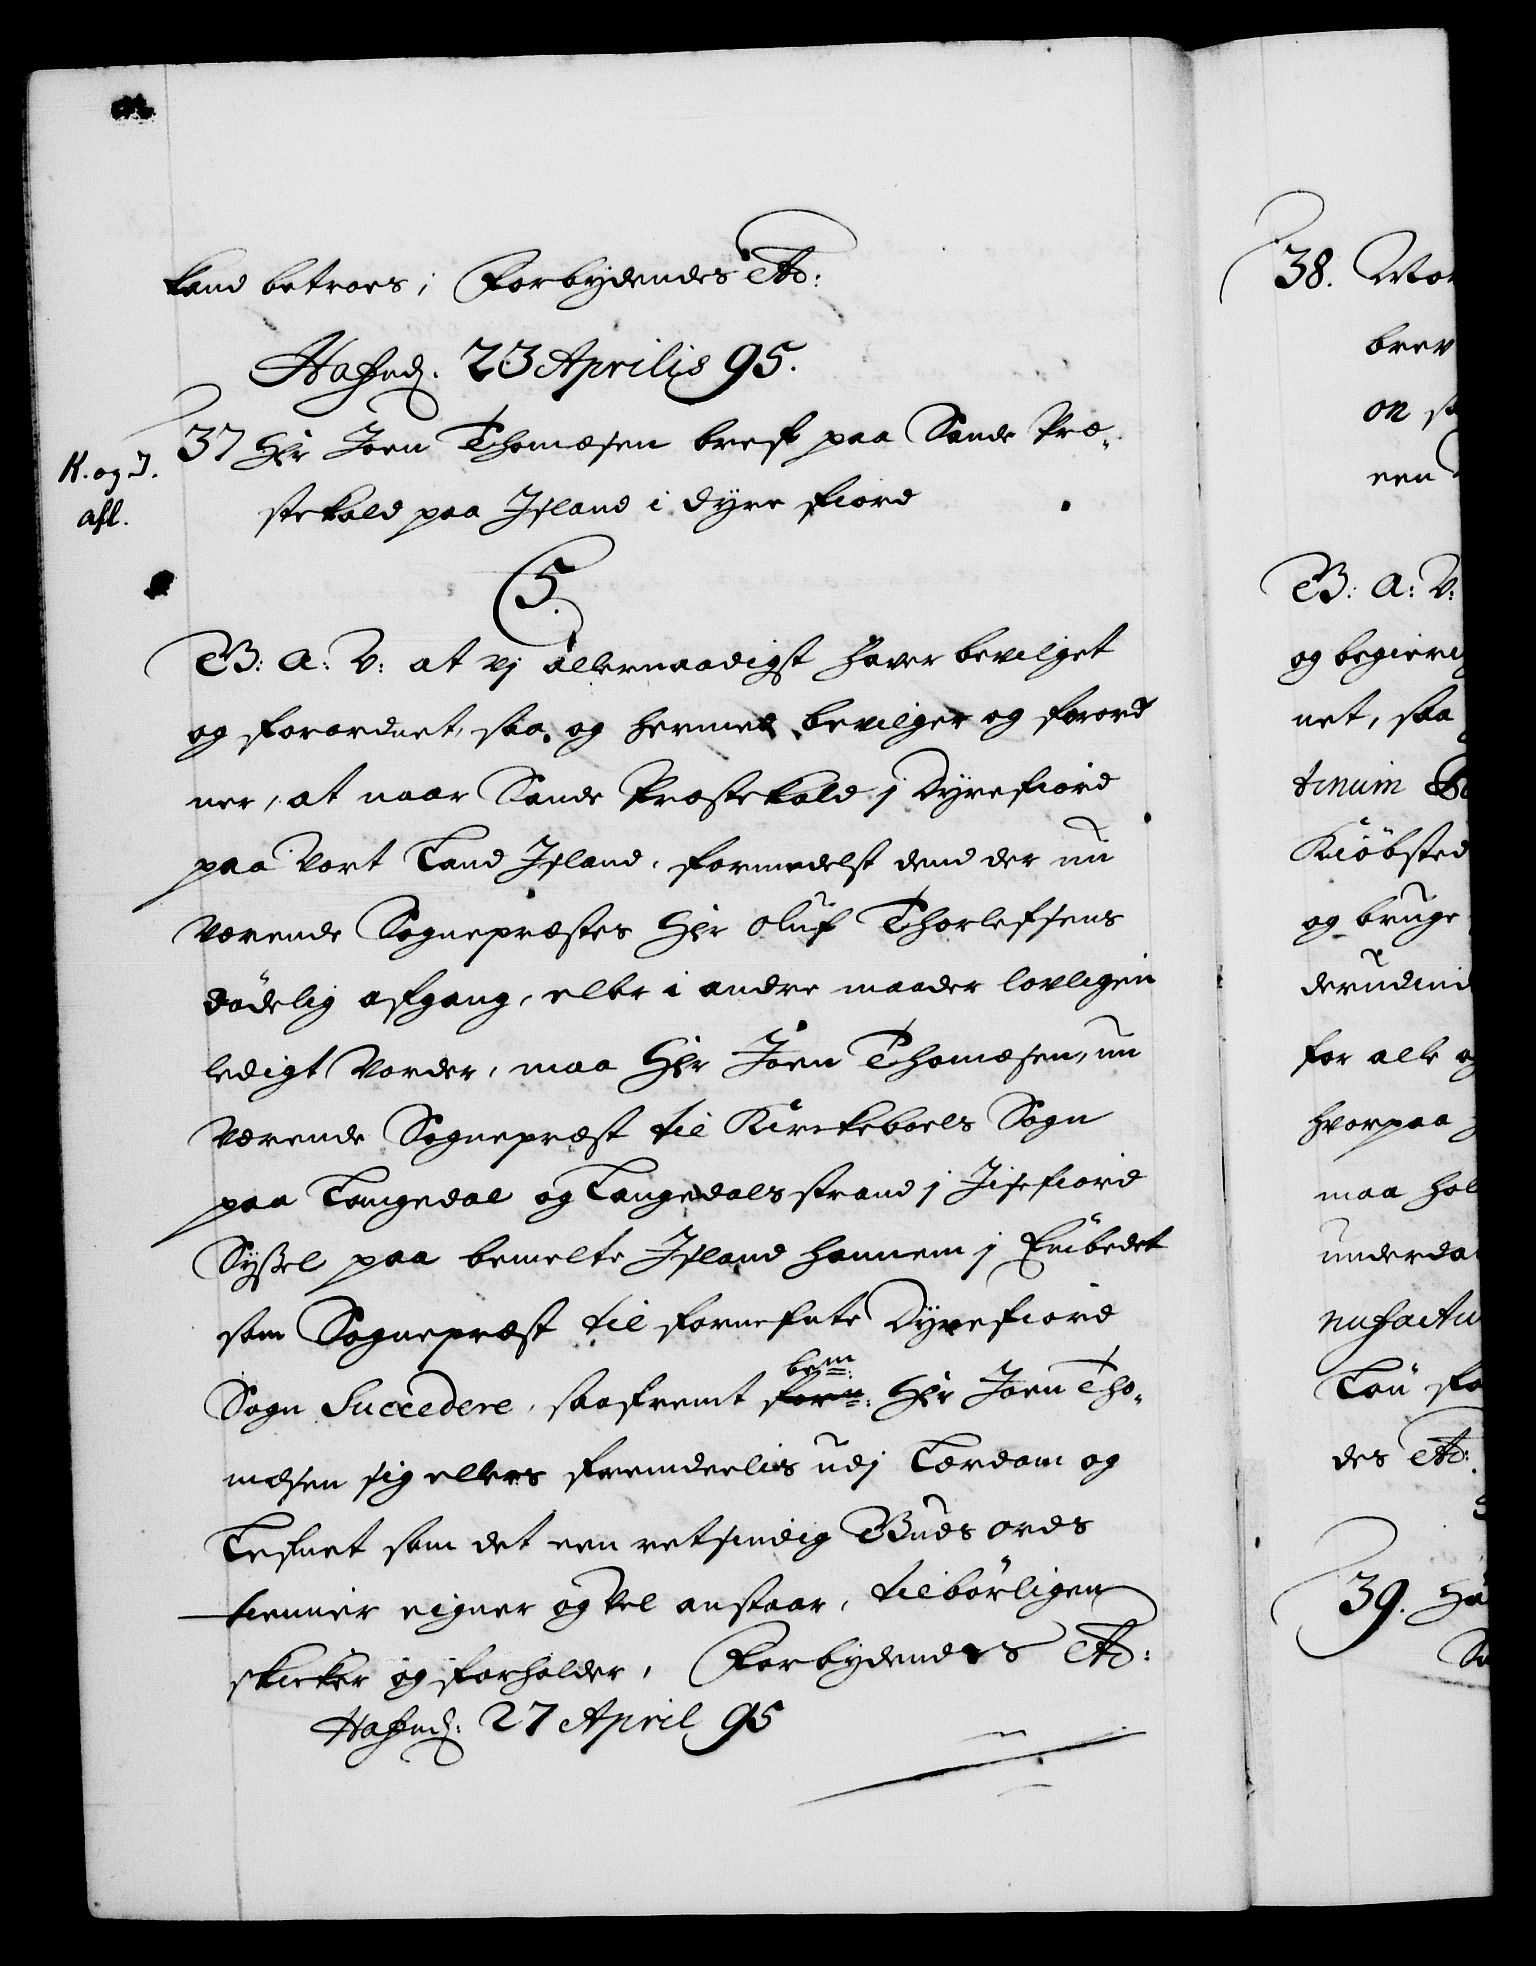 kand betroes, Forbydendes Etc:
Haffn: 23 Aprilis 95.
37 Hr Joen Thomæsen bref paa Sande Præ-
K. og I.
afl.
stekald paa Jsland i Dyre fiord
C5.
V: A: V: at vj allernaadigst hafver bevilget
og forordnet, saa og hermed bevilger og forord
ner, at naar Sande Præstekald j Dyrefiord
paa Vort Land Jsland, formedelst dend der nu
værende Sognepræstes Hr Oluf Thorlefsens
dödelig afgang, eller i andre maader lovligen
ledigt vorder, maa Hr Joen Thomæsen, nu
værende Sognepræst til Kirckeboels Sogn
paa Langedal og Langedals strand j Jisefiord
Syssel paa bemelte Jsland hannem j Embedet
som Sognepræst til fornefnte Dyrefiord
bem:
Sogn Succedere, saafremt forn: Hr Joen Tho-
mæsen sig ellers fremdeelis udj Lærdom og
Lefnet som det een retsindig Guds ords
tienner eigner og vel anstaar, tilbörligen
skicker og forholder, Forbydendes Etc:
Haffn: 27 April 95
38. Vor
brev
on
een
V: A: V:
og begierig
net, saa
tinuin
Kiöbsted
og bruge
derudind
for alle og
hvorpaa
maa hol
underda
nufactu
Lau fo
des Etc:
39.